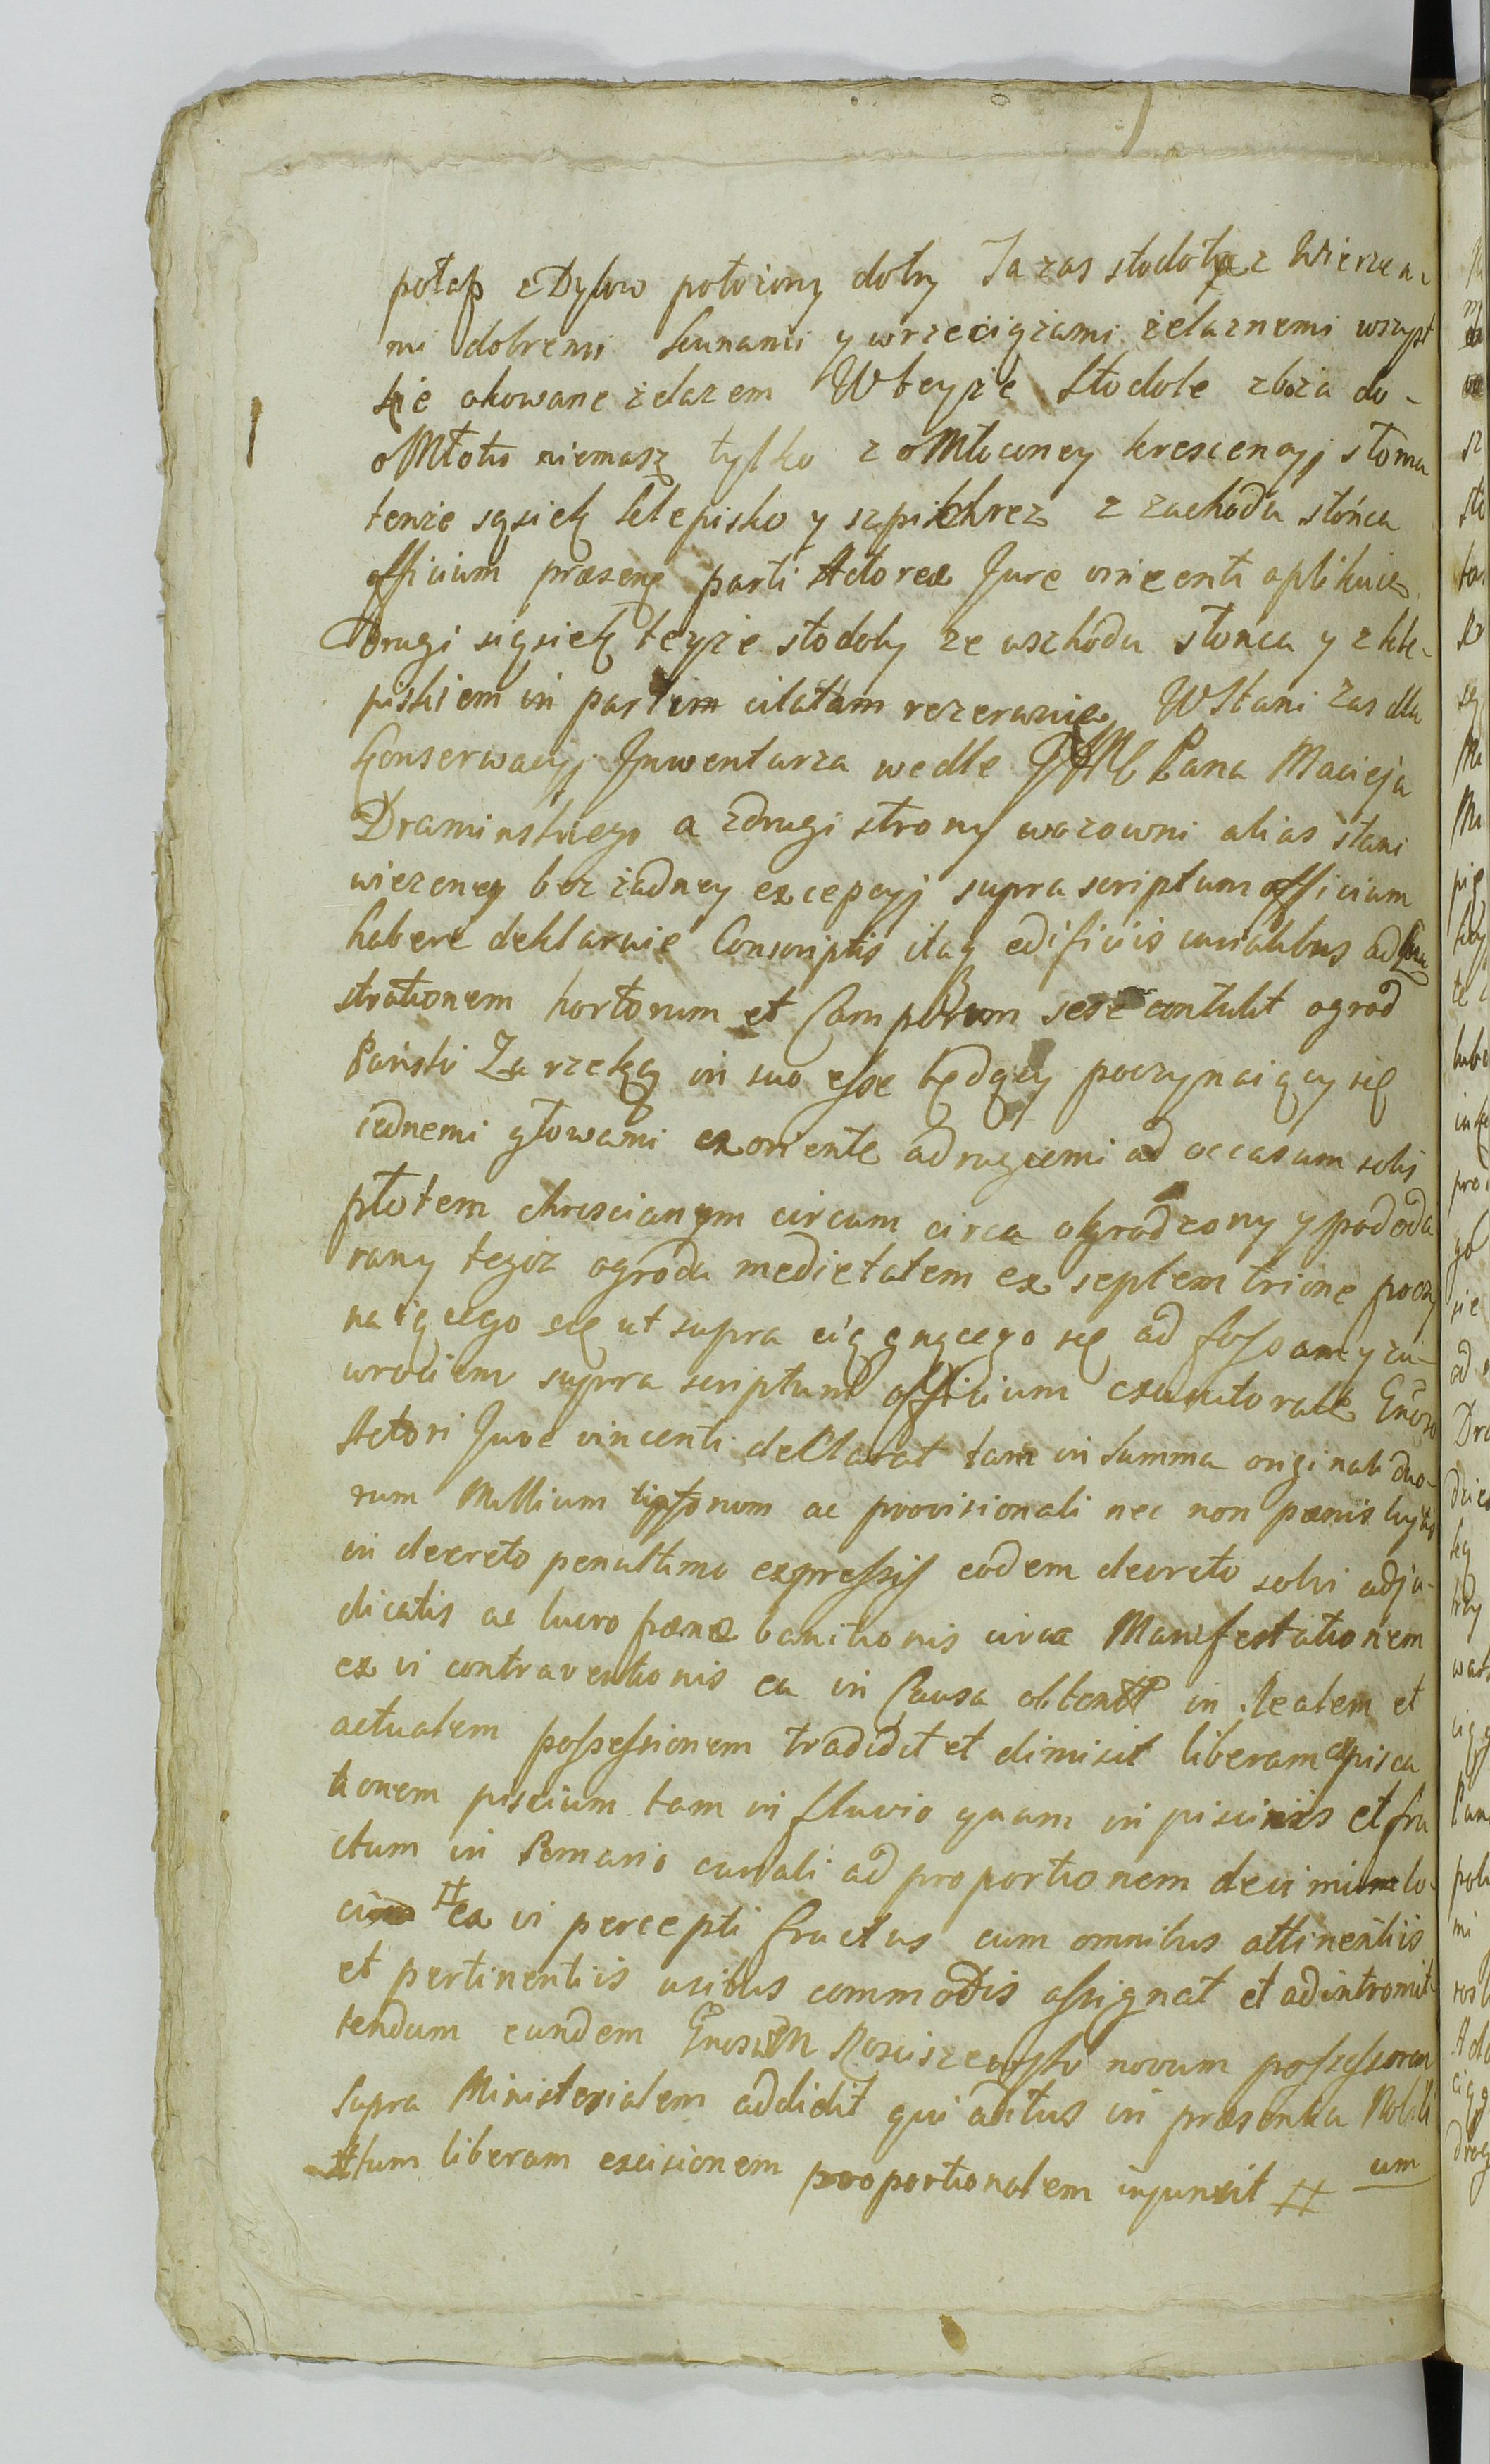 połap z Dylow położony dobry Ta zas stodoła z Wierzea-
mi dobremi kunami y wrzeciązami żelaznemi wszyst
kie okowane żelazem W teyże Stodole zboża do-
oMłotu niemasz tylko z oMłoconey krescencyj słoma
tenże sąsiek klepisko y szpikhrez z zachodu słońca
officium præsens parti Actoreæ Jure vincenti aplikuie
Drugi sąsiek teyże stodoły ze wschodu słońca y z kle-
piskiem in partem citatam rezerwuie W Stani zas dla
Konserwacyj Jnwentarza wedle JMC Pana Macieja
Draminskiego a z drugi strony wozowni alias stani
wiezeney bez żadney excepcyj supra scriptum officium
habere deklaruie Conscriptis itaq edificiis curialibus ad lu
strationem hortorum et Camporum sese contulit ogrod
Pański Za rzeką in suo esse będący poczynaiący się
iednemi głowami ex oriente a drugiemi ad occasum solis
płotem chroscianym circum circa ogrodzony y pododa
rany tegoż ogrodu medietatem ex septemtrione poczy
naiącego się ut supra ciągnącego się ad fossam y za-
wrociem supra scriptum officium executorale Gnoso
Actori Jure vincenti deClarat tam in summa originali duo-
rum Millium tipfonum ac provisionali nec non pænis luytis
in decreto penultimo expressis eodem decreto solvi adju-
dicatis ac lucro pænæ banitionis circa Manifestationem
ex vi contraventionis ea in Causa obtent in Realem et
actualem possessionem tradidit et dimisit liberam expisca
tionem piscium tam in fluvio quam in piscinis et fru
ctum in Pomario curiali ad proportionem decimi lo-
ci ex vi percepti fructus cum omnibus attinentiis
et pertinentiis usibus commodis assignat et ad intromit-
tendum eundem Gnosum Rosciszewski novum possessorem
supra Ministerialem addidit qui aditus in præsentia Nobili
um
#tum liberam excisionem proportionalem injunxit #